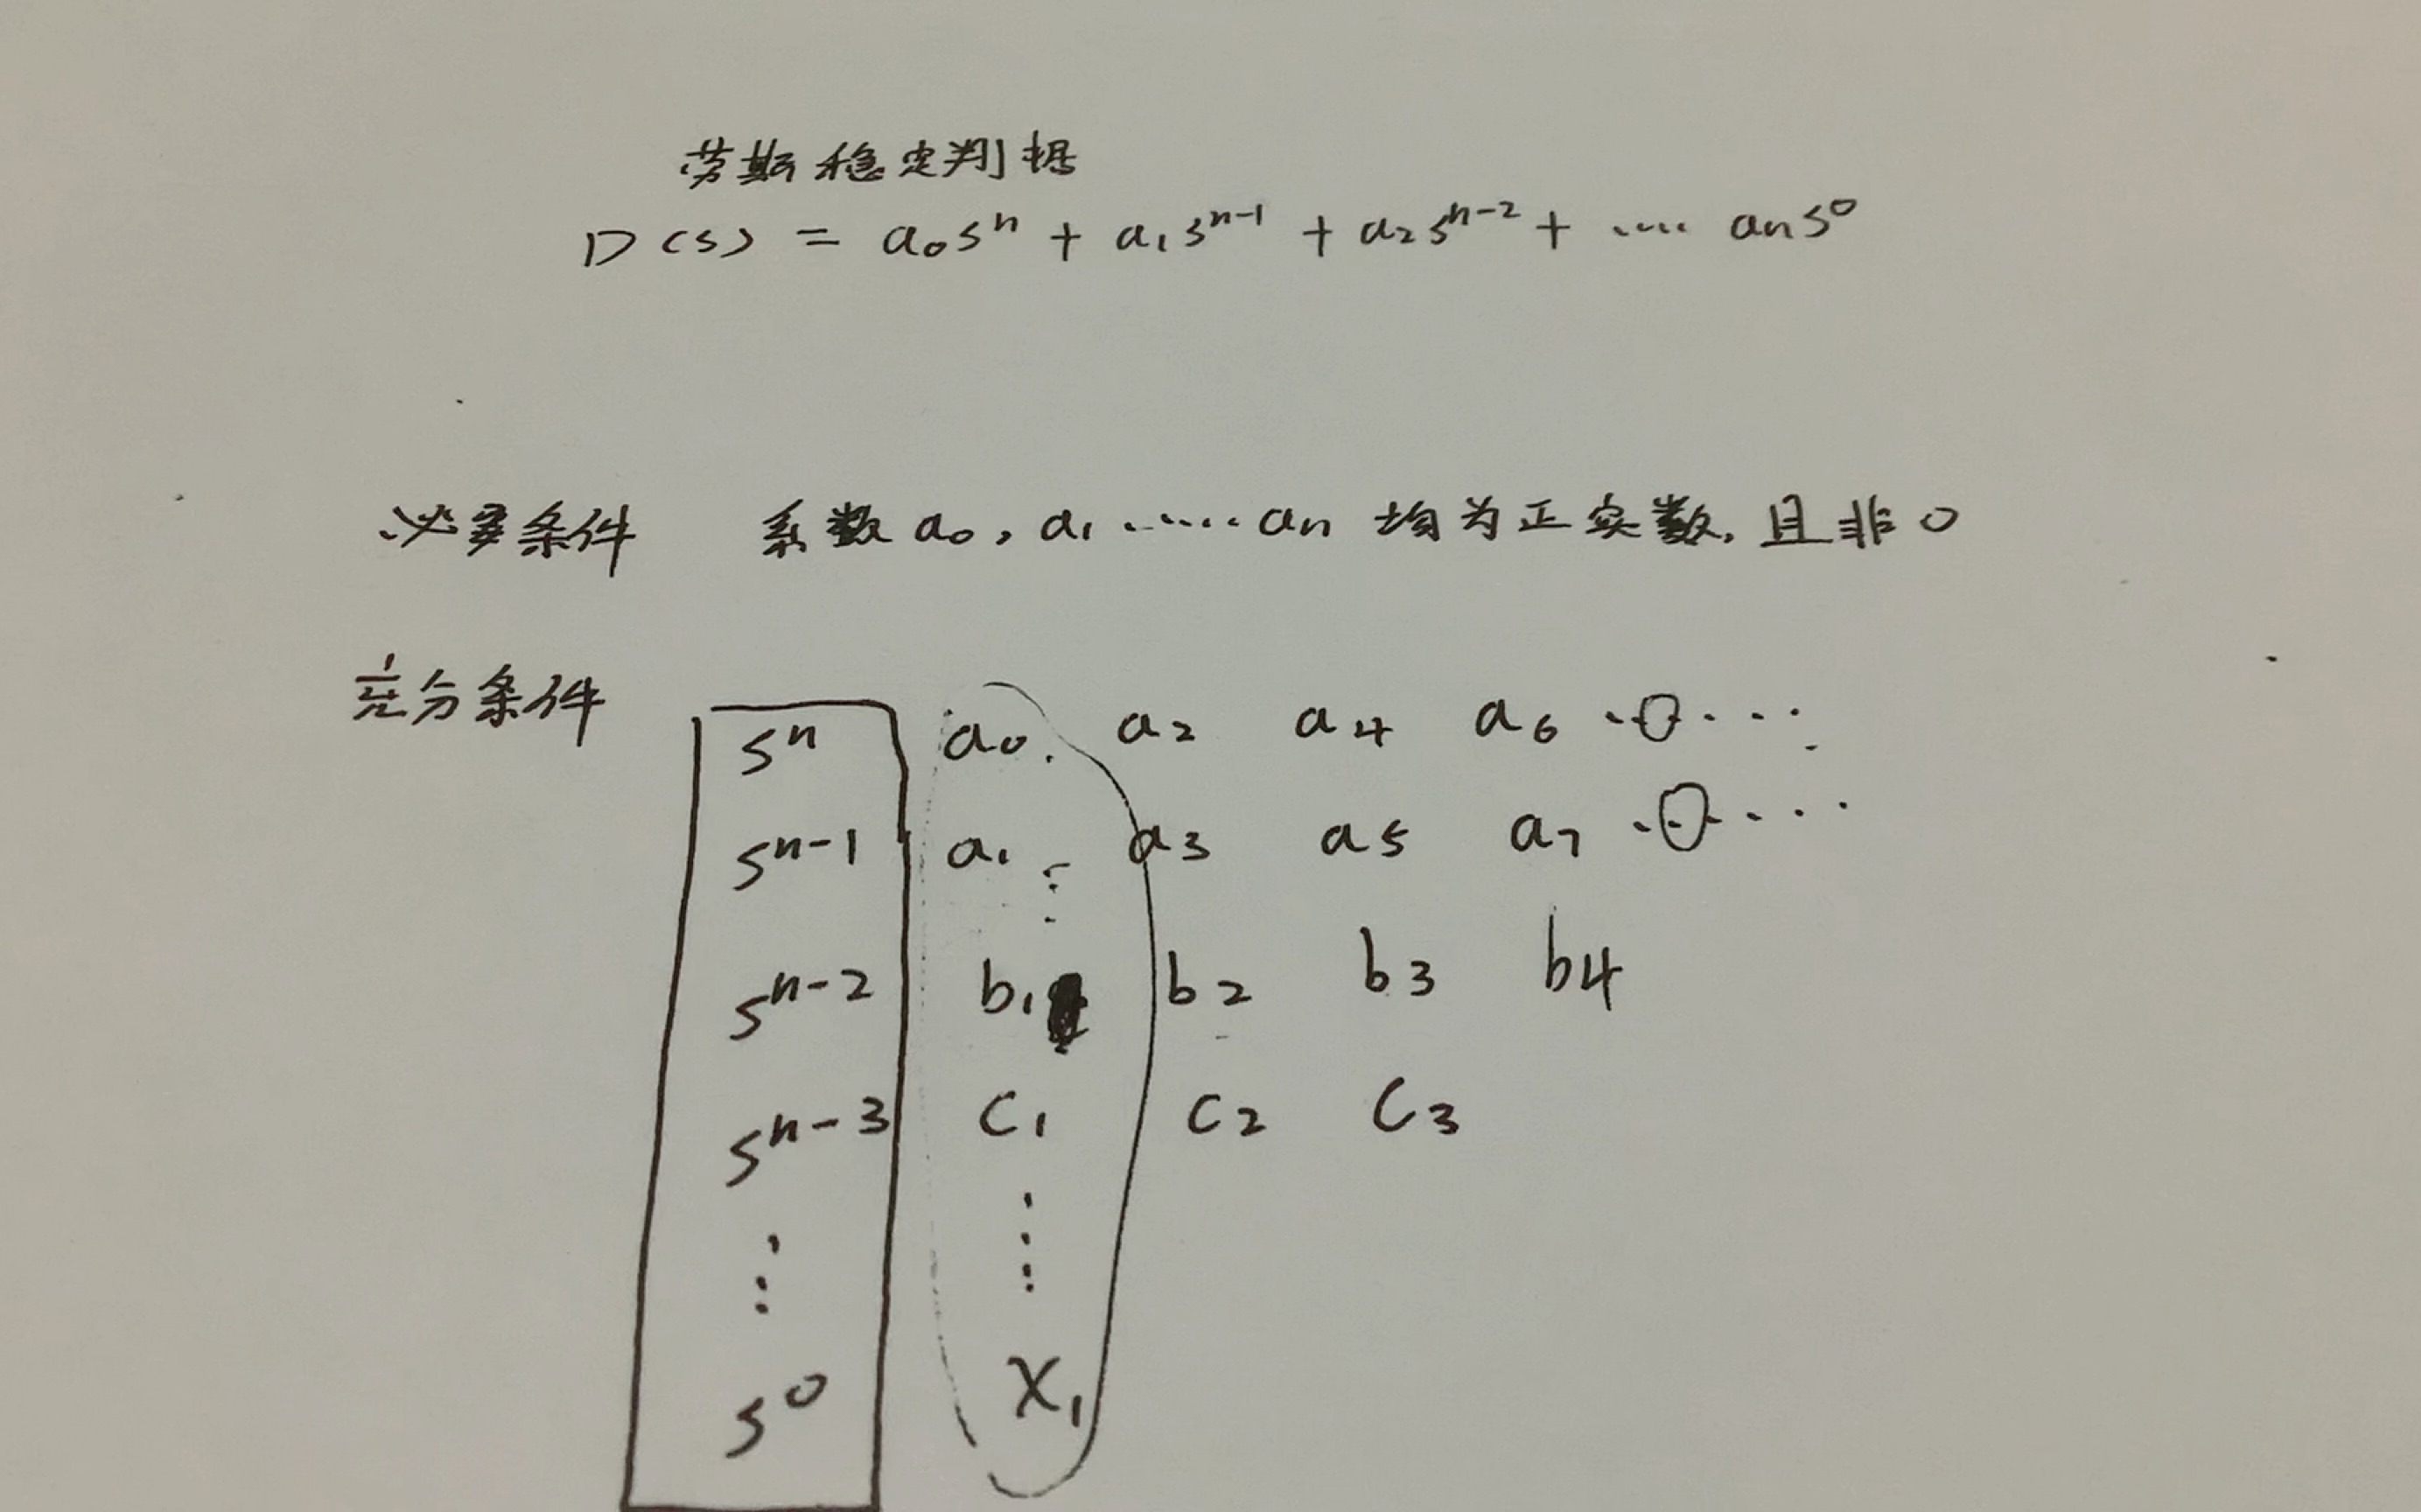 劳斯稳定判据
D(s) = a₀sⁿ + a₁sⁿ⁻¹ + a₂sⁿ⁻² + ..... aₙs⁰
必要条件 系数 a₀, a₁ ...... aₙ 均为正实数, 且非0
充分条件
sⁿ a₀ a₂ a₄ a₆ .0...
sⁿ⁻¹ a₁ a₃ a₅ a₇ .0...
sⁿ⁻² b₁ b₂ b₃ b₄
sⁿ⁻³ c₁ c₂ c₃
⋮ ⋮
s⁰ x₁